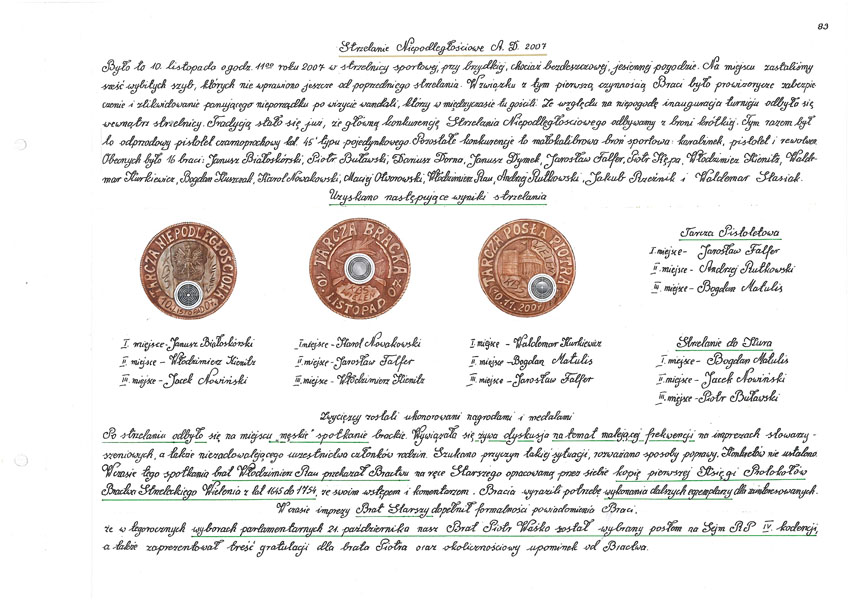 83
Strzelanie Niepodległościowe A. D. 2007
Było to 10. listopada o godz. 11⁰⁰ roku 2007 w strzelnicy sportowej, przy brzydkiej, chociaż bezdeszczowej, jesiennej pogodzie. Na miejscu zastaliśmy
sześć wybitych szyb, których nie wprawiono jeszcze od poprzedniego strzelania. W związku z tym pierwszą czynnością Braci było prowizoryczne zabezpie
czenie i zlikwidowanie panującego nieporządku po wizycie wandali, którzy w międzyczasie tu gościli. Ze względu na niepogodę inauguracja turnieju odbyło się
wewnątrz strzelnicy. Tradycją stało się już, że główną konkurencję Strzelania Niepodległościowego odbywamy z broni krótkiej. Tym razem był
to odprzodowy pistolet czarnoprochowy kal. 45 typu pojedynkowego. Pozostałe konkurencje to małokalibrowa broń sportowa: karabinek, pistolet i rewolwer.
Obecnych było 16 braci: Janusz Białoskórski, Piotr Buławski, Dariusz Dorna, Janusz Dymek, Jarosław Falfer, Piotr Kępa, Włodzimierz Kienitz, Walde-
mar Kurkiewicz, Bogdan Kuszczak, Karol Nowakowski, Maciej Olsnowski, Włodzimierz Rau, Andrzej Rutkowski, Jakub Rzeźnik i Waldemar Stasiak.
Uzyskano następujące wyniki strzelania
TARCZA NIEPODLEGŁOŚCIOWA
10 LISTOPAD 07
TARCZA BRACKA
10. LISTOPAD 07.
TARCZA POSŁA PIOTRA
WIELEŃ
10.11.2007
Tarcza Pistoletowa
I. miejsce - Jarosław Falfer
II. miejsce - Andrzej Rutkowski
III. miejsce - Bogdan Matulis
I. miejsce - Janusz Białoskórski
II. miejsce - Włodzimierz Kienitz
III. miejsce - Jacek Nowiński
I miejsce - Karol Nowakowski
II. miejsce - Jarosław Falfer
III. miejsce - Włodzimierz Kienitz
I. miejsce - Waldemar Kurkiewicz
II. miejsce - Bogdan Matulis
III. miejsce - Jarosław Falfer
Strzelanie do Kura
I. miejsce - Bogdan Matulis
II. miejsce - Jacek Nowiński
III. miejsce - Piotr Buławski
Zwycięzcy zostali uhonorowani nagrodami i medalami
Po strzelaniu odbyło się na miejscu „męskie" spotkanie brackie. Wywiązała się żywa dyskusja na temat malejącej frekwencji na imprezach stowarzy-
szeniowych, a także niezadowalającego uczestnictwa członków rodzin. Szukano przyczyn takiej sytuacji, rozważano sposoby poprawy. Konkretów nie ustalono.
W czasie tego spotkania brat Włodzimierz Rau przekazał Bractwu na ręce Starszego opracowaną przez siebie kopię pierwszej Księgi Protokołów
Bractwa Strzeleckiego Wielenia z lat 1645 do 1754, ze swoim wstępem i komentarzem. Bracia wyrazili potrzebę wykonania dalszych egzemplarzy dla zainteresowanych.
W czasie imprezy Brat Starszy dopełnił formalności powiadomienia Braci,
że w tegorocznych wyborach parlamentarnych 21. października nasz Brat Piotr Waśko został wybrany posłem na Sejm RP IV. kadencji,
a także zaprezentował treść gratulacji dla brata Piotra oraz okolicznościowy upominek od Bractwa.